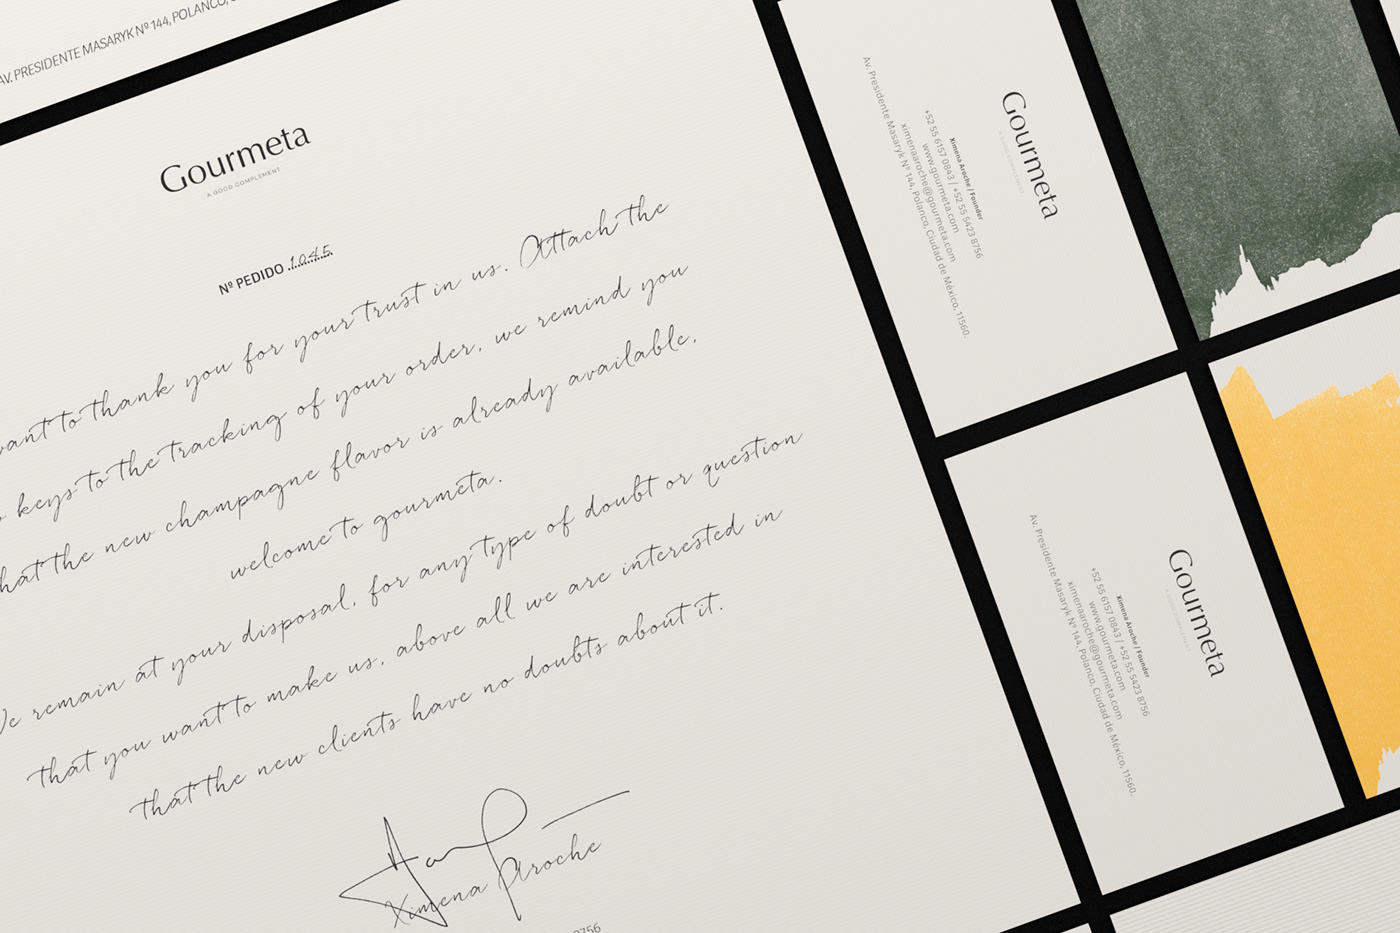 AV. PRESIDENTE MASARYK Nº 144, POLANCO,
Gourmeta
A GOOD COMPLEMENT
Nº PEDIDO 1045
want to thank you for your trust in us. Attach the
keys to the tracking of your order, we remind you
that the new champagne flavor is already available,
welcome to gourmeta.
We remain at your disposal, for any type of doubt or question
that you want to make us, above all we are interested in
that the new clients have no doubts about it.
Ximena Aroche
8756
Gourmeta
A GOOD COMPLEMENT
Ximena Aroche / Founder
+52 55 6157 0843 / +52 55 5423 8756
www.gourmeta.com
ximenaaroche@gourmeta.com
Av. Presidente Masaryk Nº 144, Polanco, Ciudad de México, 11560.
Gourmeta
A GOOD COMPLEMENT
Ximena Aroche / Founder
+52 55 6157 0843 / +52 55 5423 8756
www.gourmeta.com
ximenaaroche@gourmeta.com
Av. Presidente Masaryk Nº 144, Polanco, Ciudad de México, 11560.